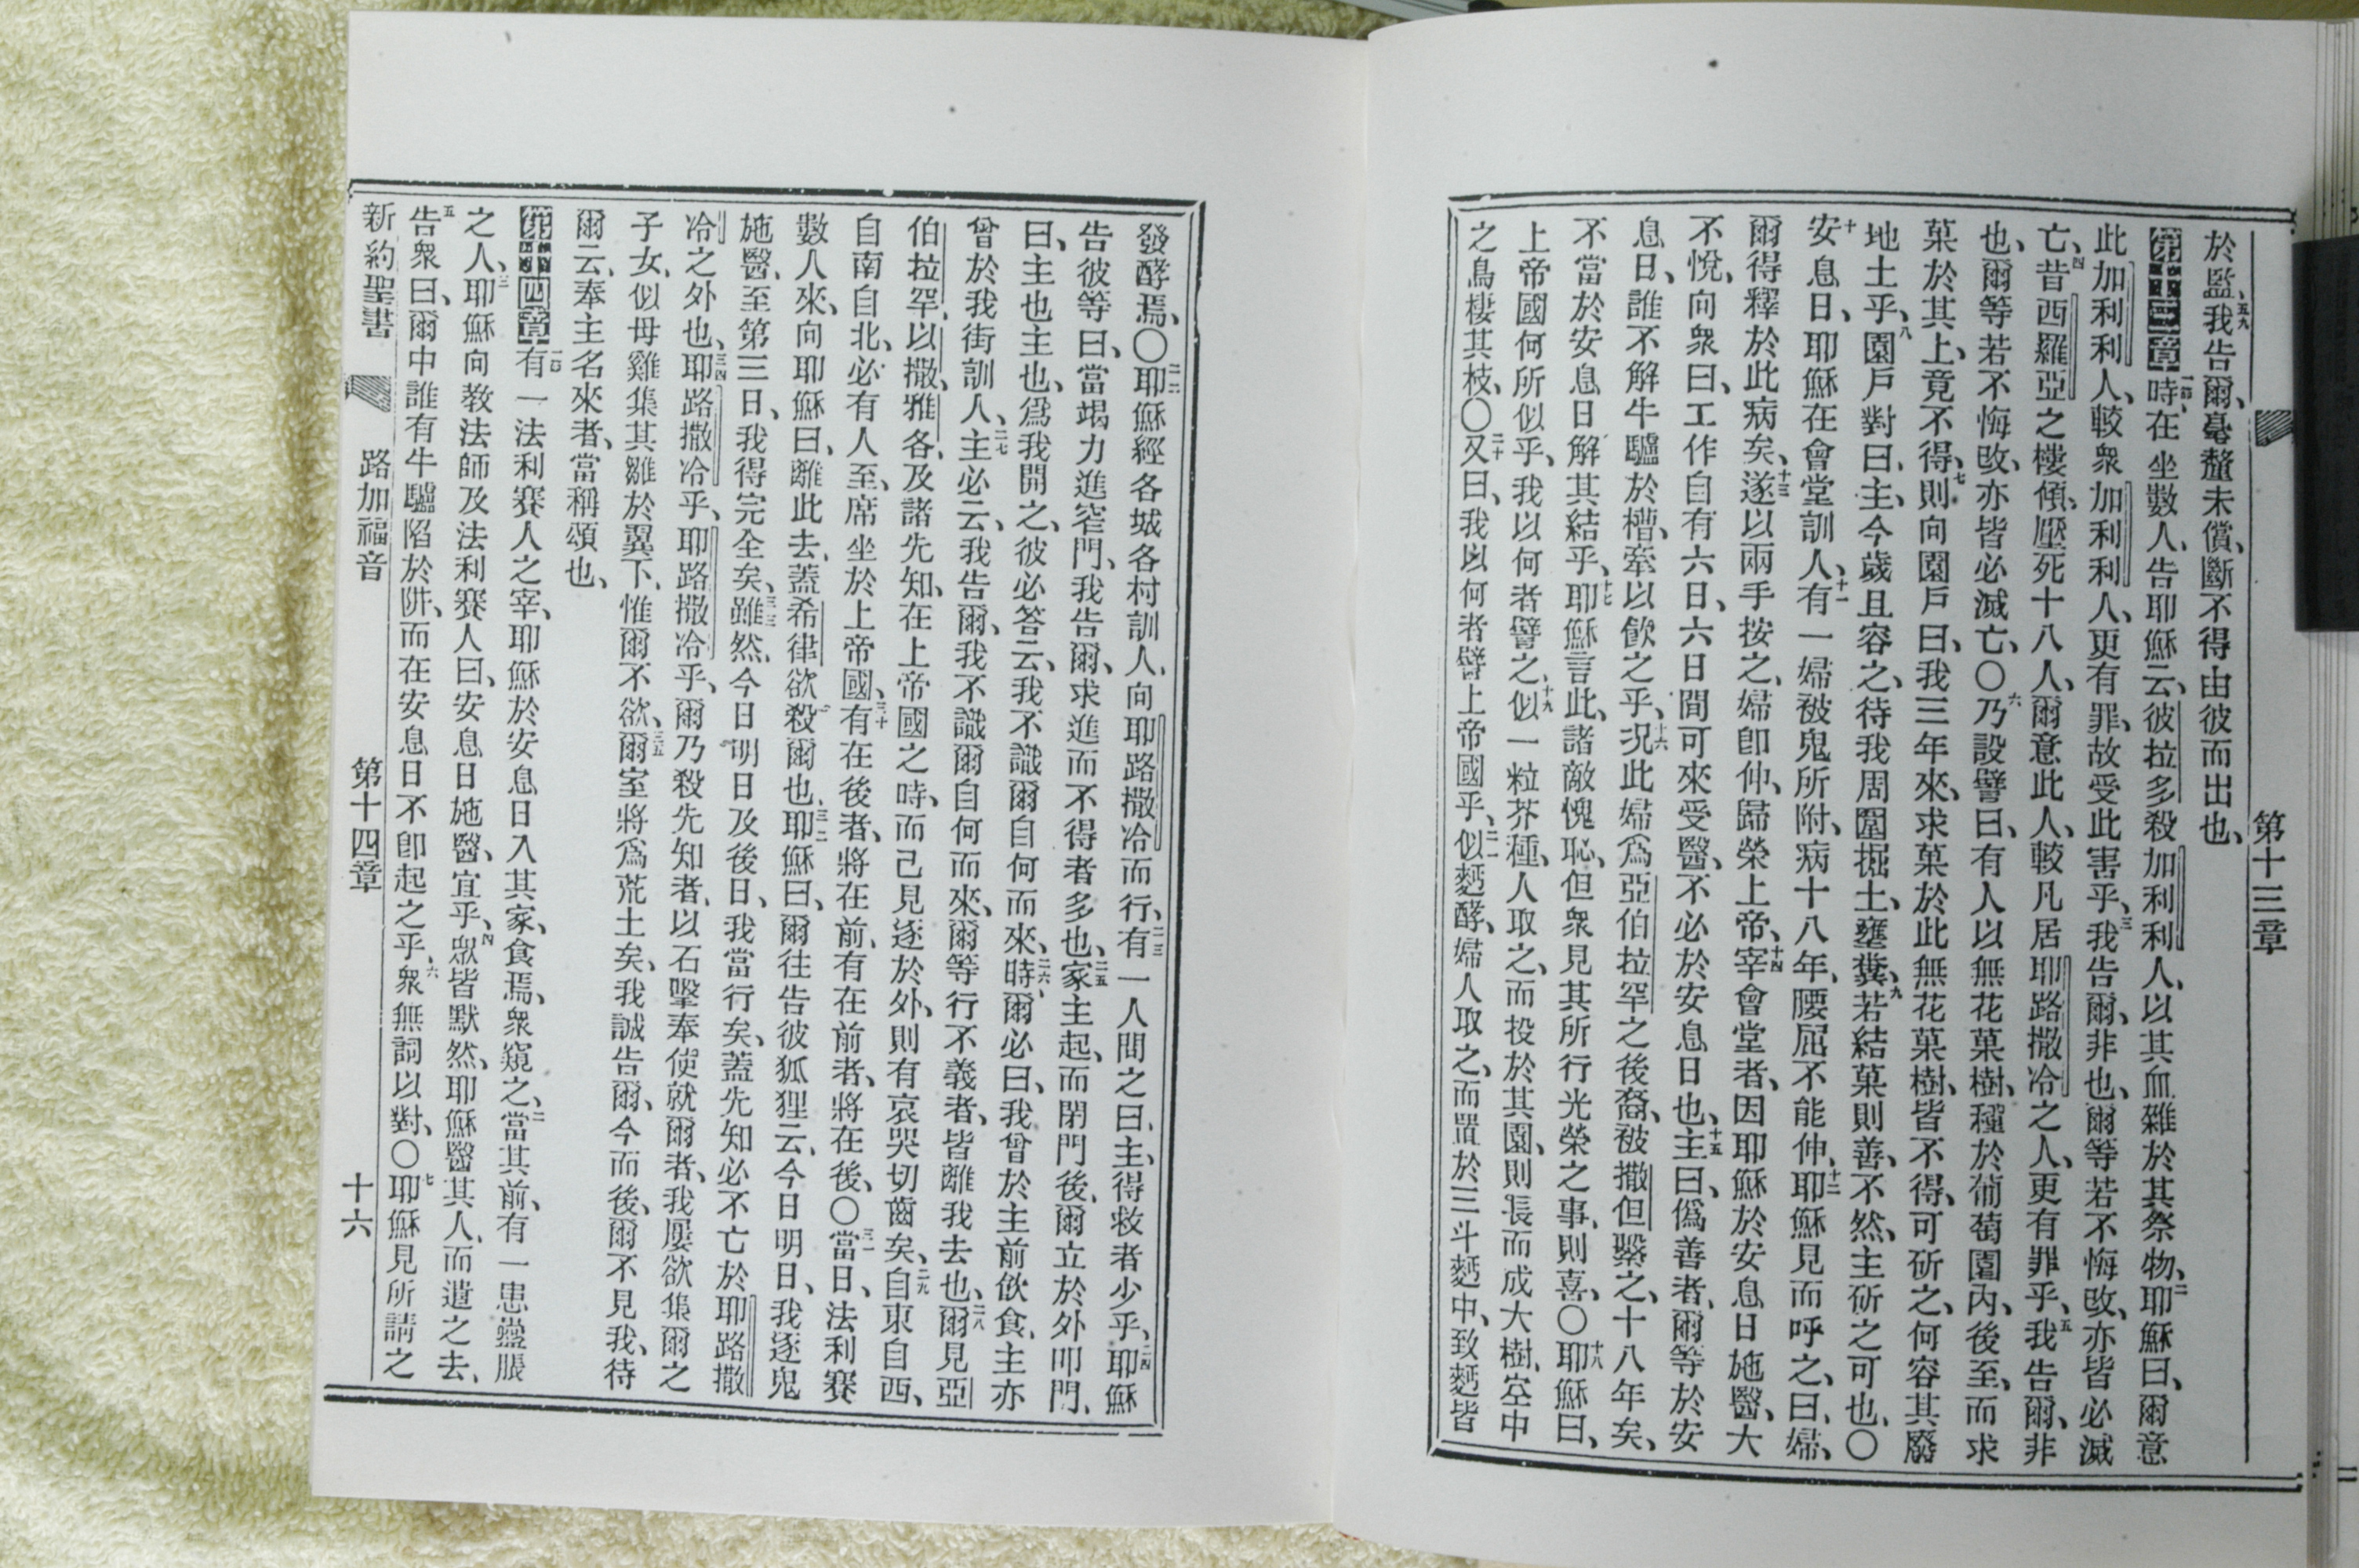 第十三章
於監、五九我告爾、毫釐未償、斷不得由彼而出也、
第十三章一節時在坐數人、告耶穌云、彼拉多殺加利利人、以其血雜於其祭物、二耶穌曰、爾意
此加利利人、較衆加利利人、更有罪、故受此害乎、三我告爾、非也、爾等若不悔改、亦皆必滅
亡、四昔西羅亞之樓傾、壓死十八人、爾意此人、較凡居耶路撒冷之人、更有罪乎、五我告爾、非
也、爾等若不悔改、亦皆必滅亡、〇六乃設譬曰、有人以無花菓樹、種於葡萄園內、後至、而求
菓於其上、竟不得、七則向園戶曰、我三年來、求菓於此無花菓樹、皆不得、可斫之、何容其廢
地土乎、八園戶對曰、主、今歲且容之、待我周圍掘土、壅糞、九若結菓則善、不然、主斫之可也、〇
十安息日、耶穌在會堂訓人、十一有一婦被鬼所附、病十八年、腰屈不能伸、十二耶穌見而呼之、曰、婦、
爾得釋於此病矣、十三遂以兩手按之、婦卽伸、歸榮上帝、十四宰會堂者、因耶穌於安息日施醫、大
不悅、向衆曰、工作自有六日、六日間可來受醫、不必於安息日也、十五主曰、僞善者、爾等於安
息日、誰不解牛驢於槽、牽以飮之乎、十六況此婦爲亞伯拉罕之後裔、被撒但繫之、十八年矣、
不當於安息日解其結乎、十七耶穌言此、諸敵愧恥、但衆見其所行光榮之事、則喜、〇十八耶穌曰、
上帝國何所似乎、我以何者譬之、十九似一粒芥種、人取之、而投於其園、則長而成大樹、空中
之鳥棲其枝、〇二十又曰、我以何者譬上帝國乎、二一似麪酵、婦人取之、而置於三斗麪中、致麪皆
發酵焉、〇二二耶穌經各城各村訓人、向耶路撒冷而行、二三有一人問之曰、主、得救者少乎、二四耶穌
告彼等曰、當竭力進窄門、我告爾、求進而不得者多也、二五家主起、而閉門後、爾立於外叩門、
曰、主也主也、爲我開之、彼必答云、我不識爾自何而來、二六時爾必曰、我曾於主前飮食、主亦
曾於我街訓人、二七主必云、我告爾、我不識爾自何而來、爾等行不義者、皆離我去也、二八爾見亞
伯拉罕、以撒、雅各、及諸先知、在上帝國之時、而己見逐於外、則有哀哭切齒矣、二九自東自西、
自南自北、必有人至、席坐於上帝國、三十有在後者、將在前、有在前者、將在後、〇三一當日、法利賽
數人來、向耶穌曰、離此去、蓋希律欲殺爾也、三二耶穌曰、爾往告彼狐狸云、今日明日、我逐鬼
施醫、至第三日、我得完全矣、三三雖然、今日明日及後日、我當行矣、蓋先知必不亡於耶路撒
冷之外也、三四耶路撒冷乎、耶路撒冷乎、爾乃殺先知者、以石擊奉使就爾者、我屢欲集爾之
子女、似母雞集其雛於翼下、惟爾不欲、三五爾室將爲荒土矣、我誠告爾、今而後、爾不見我、待
爾云、奉主名來者、當稱頌也、
第十四章一節有一法利賽人之宰、耶穌於安息日入其家、食焉、衆窺之、二當其前、有一患蠱脹
之人、三耶穌向敎法師及法利賽人曰、安息日施醫、宜乎、四衆皆默然、耶穌醫其人、而遣之去、
五告衆曰、爾中誰有牛驢陷於阱、而在安息日不卽起之乎、六衆無詞以對、〇七耶穌見所請之
新約聖書 路加福音 第十四章 十六